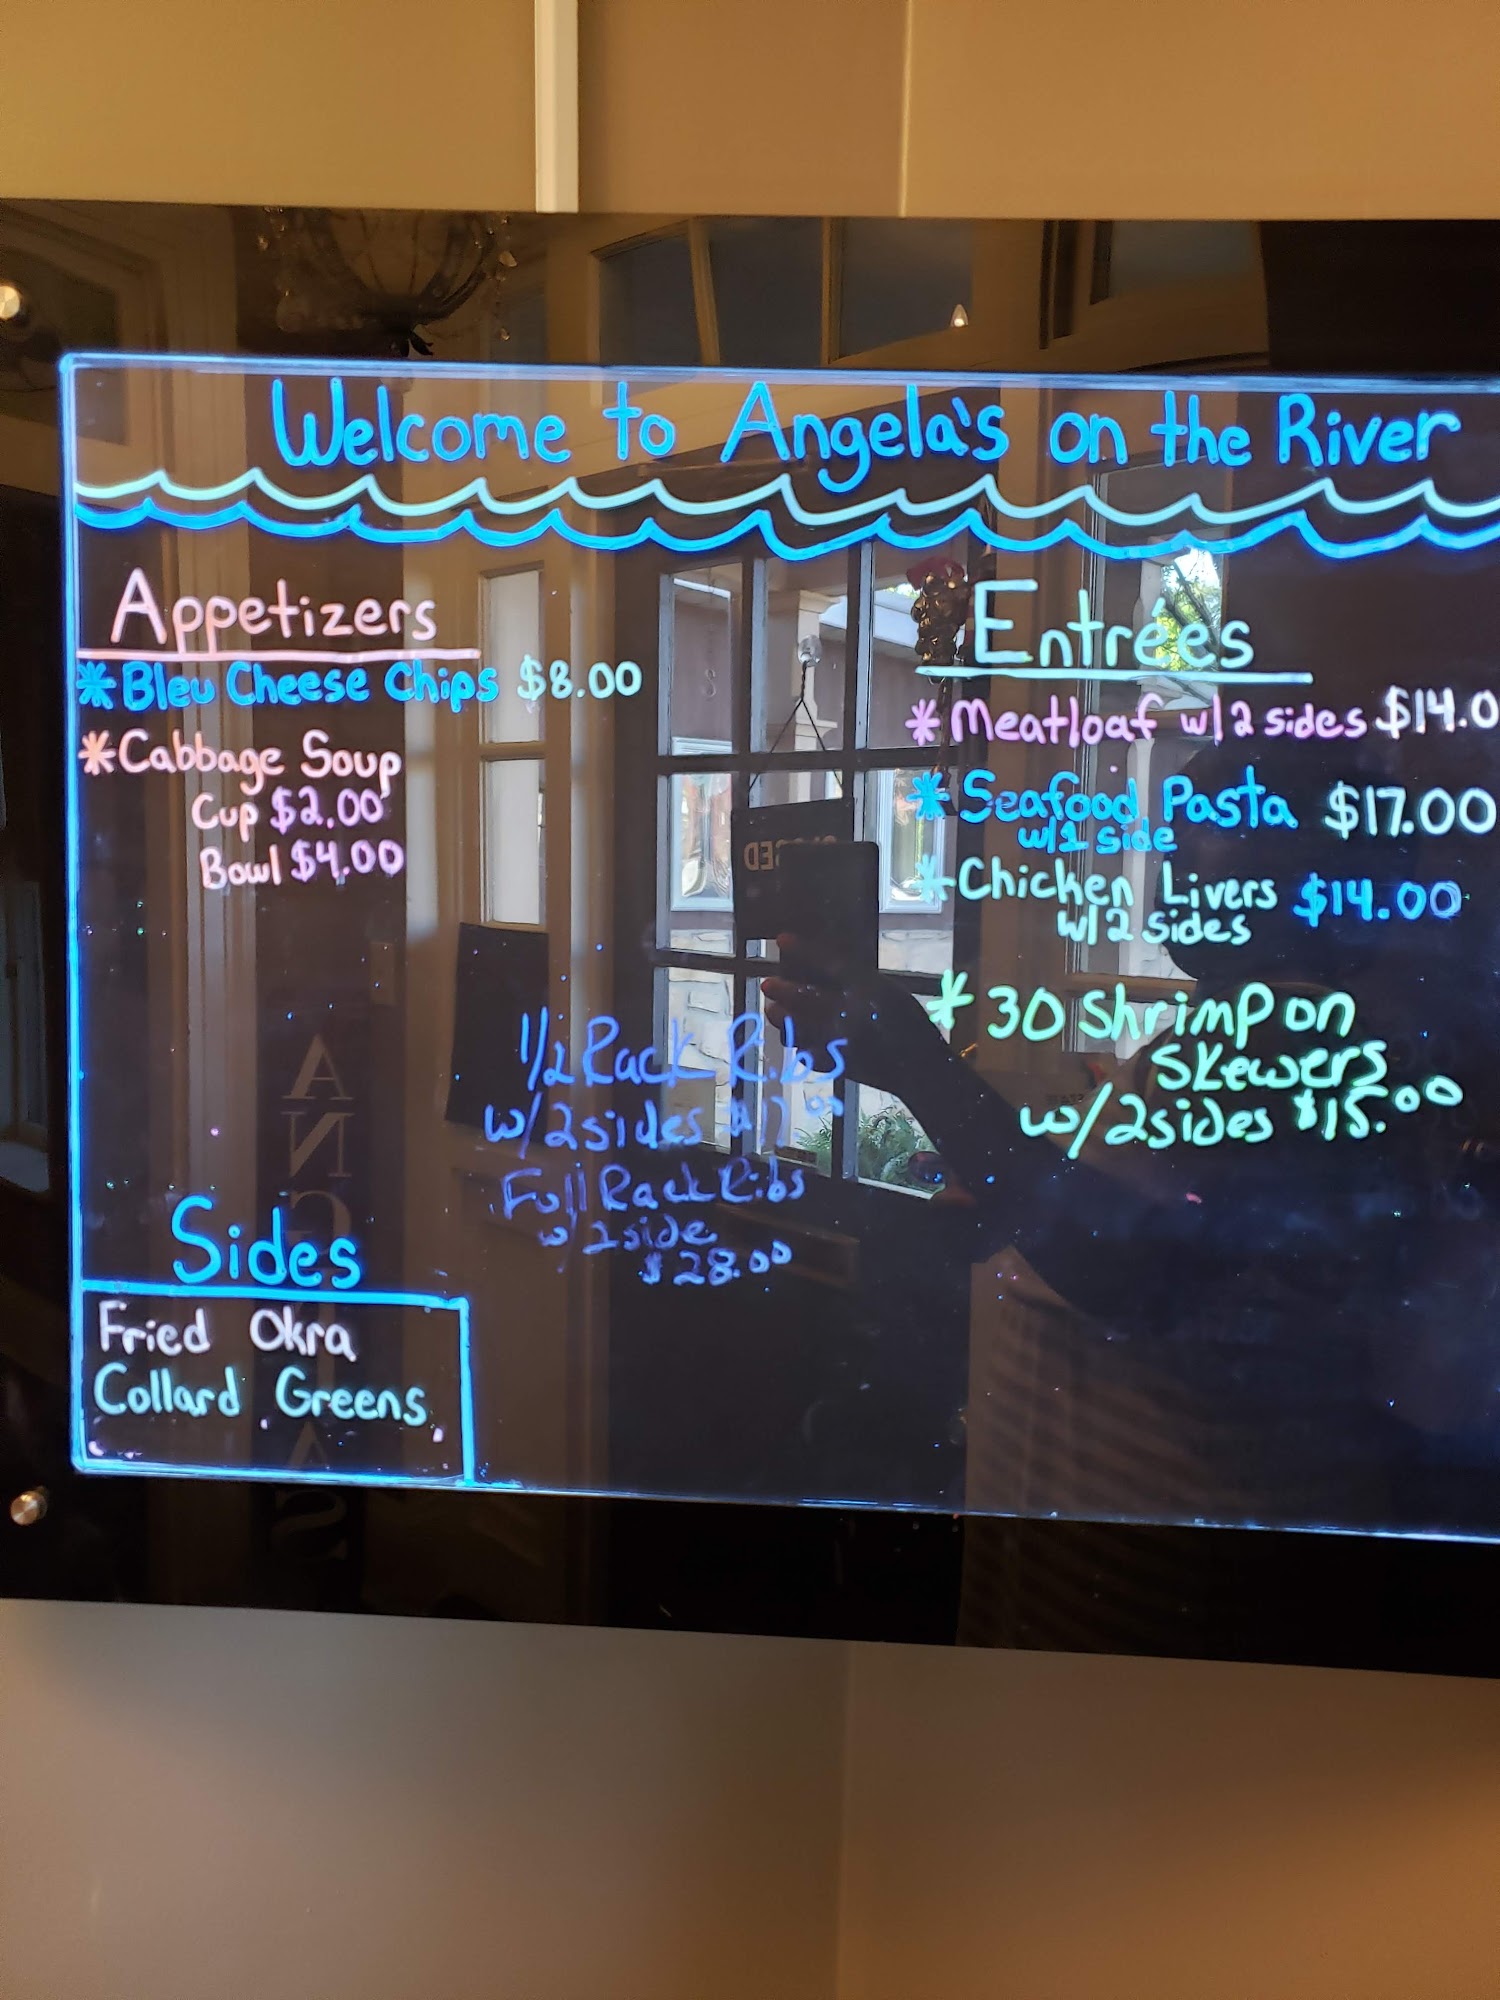 Welcome to Angela's on the River
Appetizers
*Bleu Cheese Chips $8.00
*Cabbage Soup
Cup $2.00
Bowl $4.00
Entrées
*Meatloaf w/2 sides $14.0
*Seafood Pasta $17.00
w/1 side
*Chicken Livers $14.00
w/2 sides
*30 Shrimp on
Skewers
w/2sides $15.00
1/2 Rack Ribs
w/2sides
Full Rack Ribs
w/2side
$28.00
Sides
Fried Okra
Collard Greens